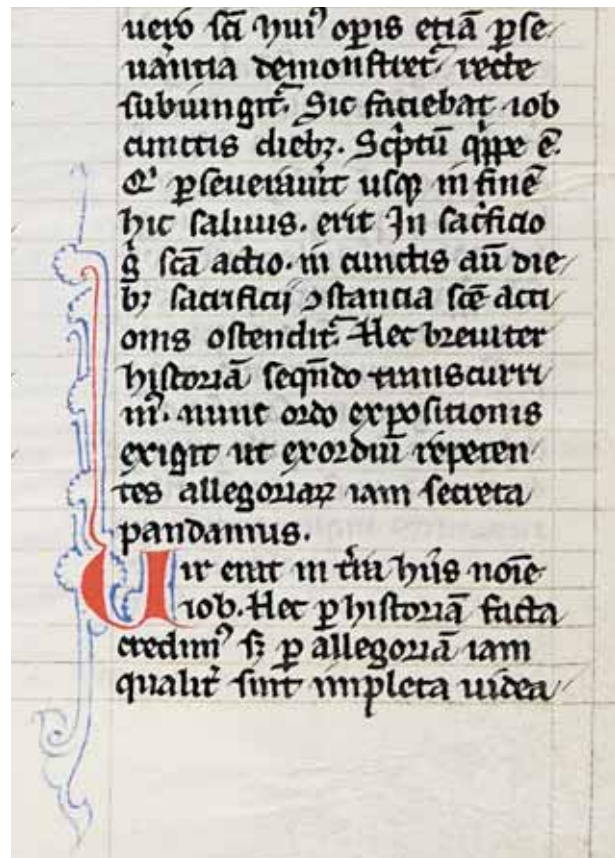 uero sc̄i hui᷒ opis etiā ꝑse
uerātia demonstret᷑ recte
subiungit᷑. Sic faciebat iob
cunctis dieb᷒. Sc̓ptū q̓ppe ē.
Q̓ ꝑseuerauit usqꝫ in finē
hic saluus. erit In sac̓ficio
g̊ sc̄a actio. in cunctis aū die
bꝫ sacrificij ꝯstancia sc̄e acti
onis ostendit᷑. Hec breuiter
historiā seqn̄do transcurri
m᷒. nunc ordo expositionis
exigit ut exordiū repeten
tes allegoriaꝝ iam secreta
pandamus.
Uir erat in t̓ra hus noīe
iob. Hec ꝑ historiā facta
credim᷒ sꝫ ꝑ allegoriā iam
qualit̓ sint impleta uidea